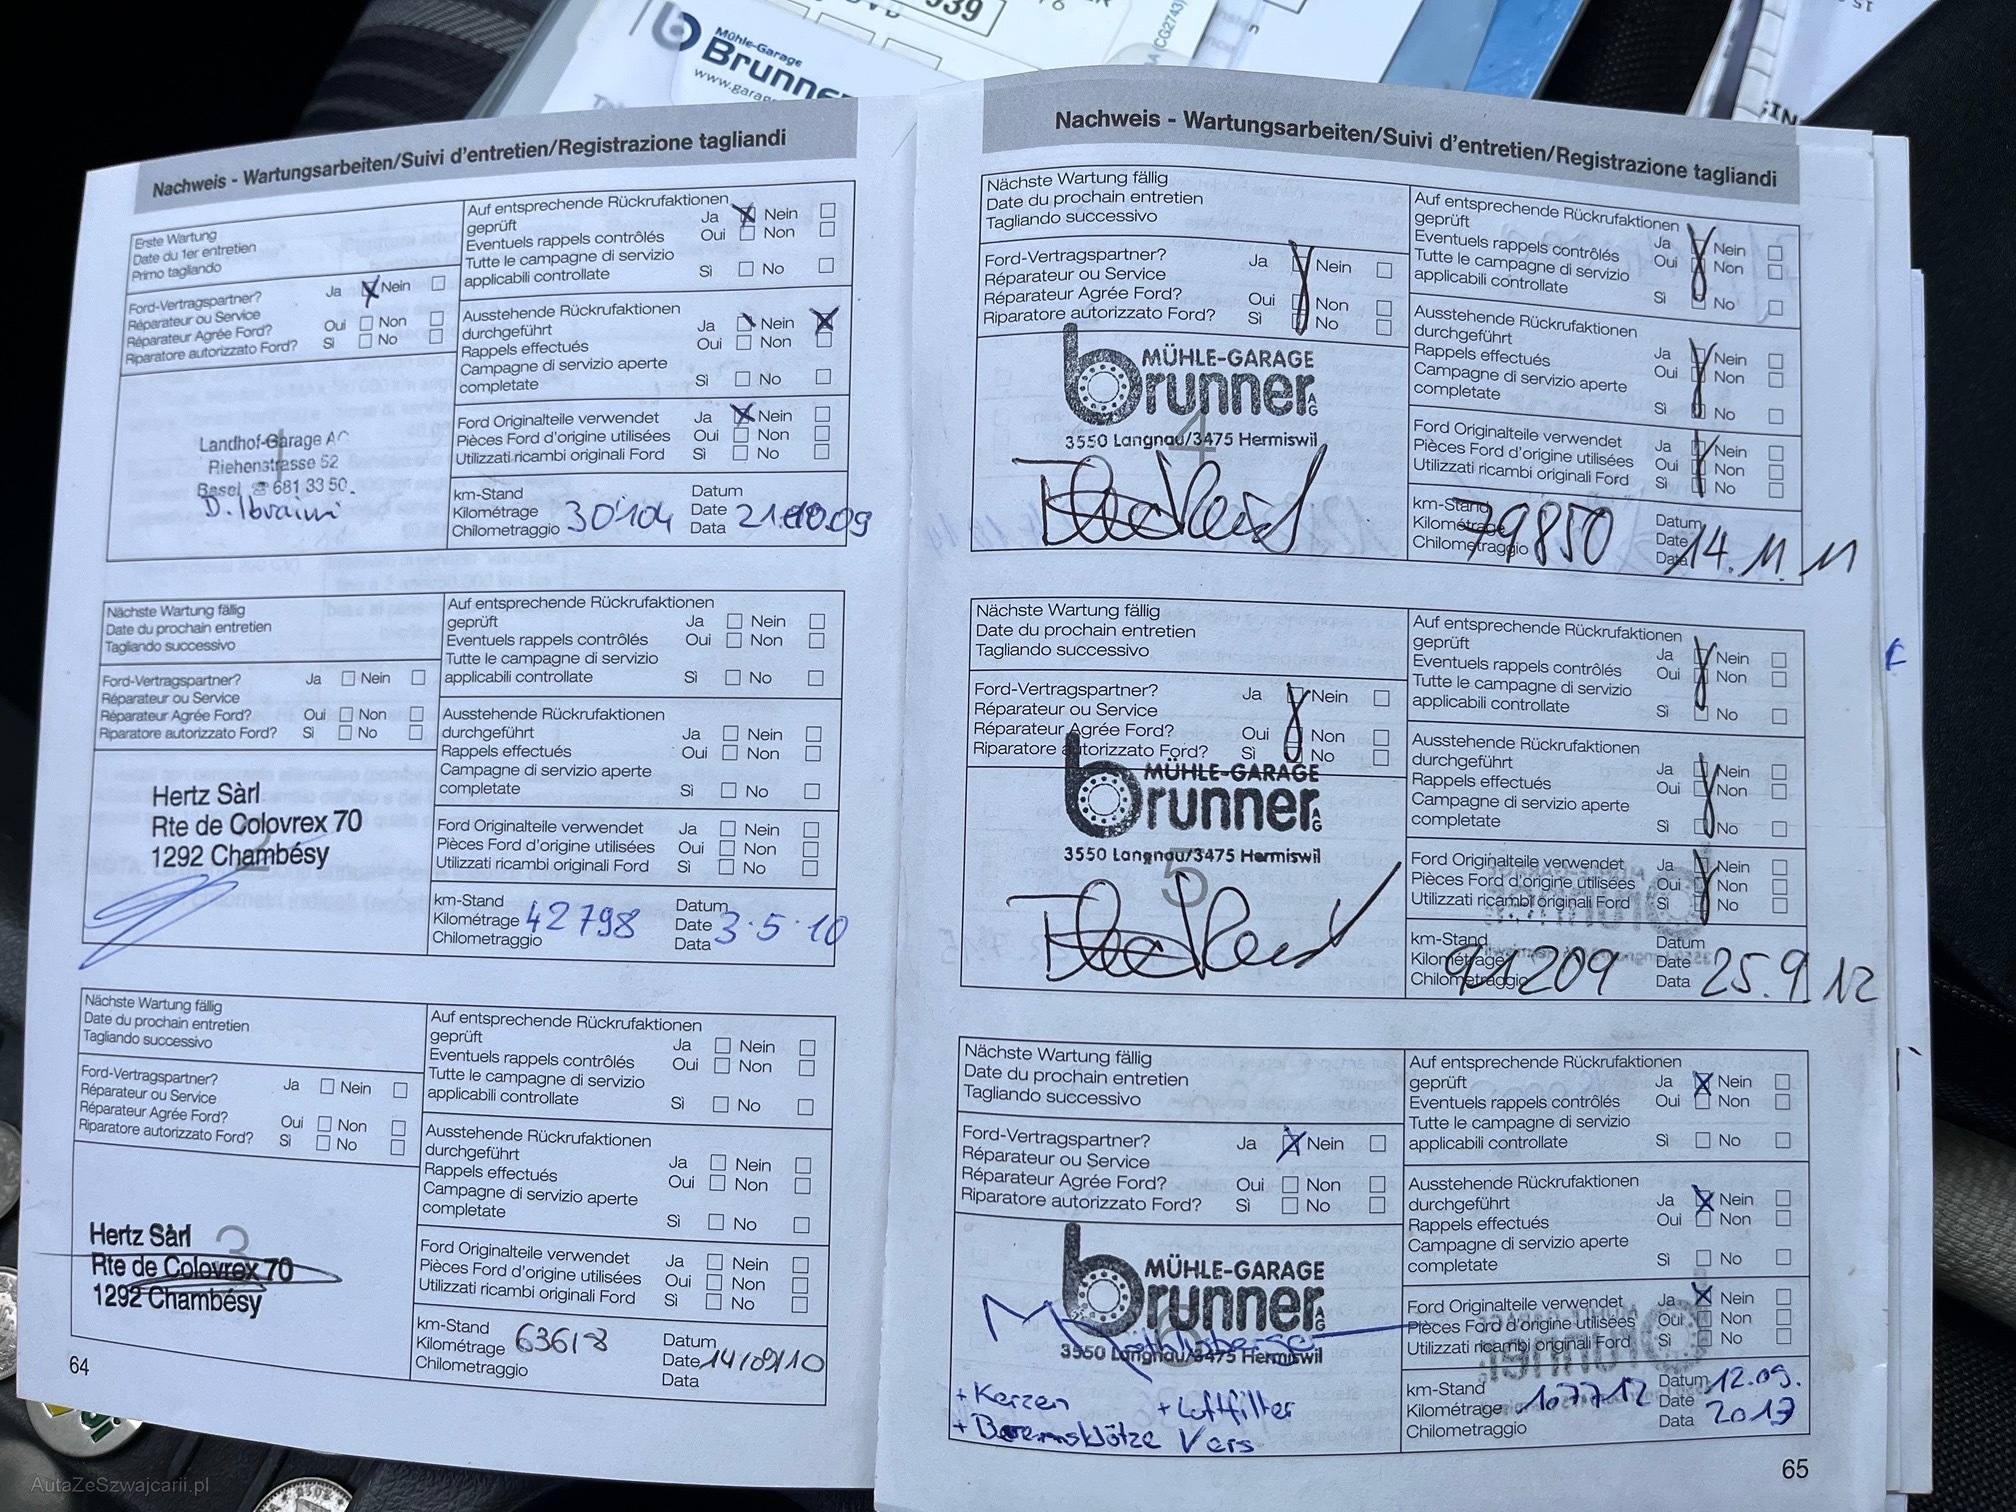 Mühle-Garage
Brunne
www.garag
939
(CG2743)
Nachweis - Wartungsarbeiten/Suivi d'entretien/Registrazione tagliandi
Erste Wartung
Date du 1er entretien
Primo tagliando
Ford-Vertragspartner? Ja Nein
Réparateur ou Service
Réparateur Agrée Ford? Oui Non
Riparatore autorizzato Ford? Sì No
Auf entsprechende Rückrufaktionen
geprüft Ja Nein
Eventuels rappels contrôlés Oui Non
Tutte le campagne di servizio
applicabili controllate Sì No
Ausstehende Rückrufaktionen
durchgeführt Ja Nein
Rappels effectués Oui Non
Campagne di servizio aperte
completate Sì No
Ford Originalteile verwendet Ja Nein
Pièces Ford d'origine utilisées Oui Non
Utilizzati ricambi originali Ford Sì No
1
Landhof-Garage AG
Riehenstrasse 52
Basel ☎ 681 33 50
D. Ibraimi
km-Stand Datum
Kilométrage 30'104 Date 21.10.09
Chilometraggio Data
Nächste Wartung fällig
Date du prochain entretien
Tagliando successivo
Ford-Vertragspartner? Ja Nein
Réparateur ou Service
Réparateur Agrée Ford? Oui Non
Riparatore autorizzato Ford? Sì No
Auf entsprechende Rückrufaktionen
geprüft Ja Nein
Eventuels rappels contrôlés Oui Non
Tutte le campagne di servizio
applicabili controllate Sì No
Ausstehende Rückrufaktionen
durchgeführt Ja Nein
Rappels effectués Oui Non
Campagne di servizio aperte
completate Sì No
Ford Originalteile verwendet Ja Nein
Pièces Ford d'origine utilisées Oui Non
Utilizzati ricambi originali Ford Sì No
2
Hertz Sàrl
Rte de Colovrex 70
1292 Chambésy
km-Stand Datum
Kilométrage 42798 Date 3.5.10
Chilometraggio Data
Nächste Wartung fällig
Date du prochain entretien
Tagliando successivo
Ford-Vertragspartner? Ja Nein
Réparateur ou Service
Réparateur Agrée Ford? Oui Non
Riparatore autorizzato Ford? Sì No
Auf entsprechende Rückrufaktionen
geprüft Ja Nein
Eventuels rappels contrôlés Oui Non
Tutte le campagne di servizio
applicabili controllate Sì No
Ausstehende Rückrufaktionen
durchgeführt Ja Nein
Rappels effectués Oui Non
Campagne di servizio aperte
completate Sì No
Ford Originalteile verwendet Ja Nein
Pièces Ford d'origine utilisées Oui Non
Utilizzati ricambi originali Ford Sì No
3
Hertz Sàrl
Rte de Colovrex 70
1292 Chambésy
km-Stand Datum
Kilométrage Date 14/09/10
Chilometraggio Data
64
Nachweis - Wartungsarbeiten/Suivi d'entretien/Registrazione tagliandi
Nächste Wartung fällig
Date du prochain entretien
Tagliando successivo
Ford-Vertragspartner? Ja Nein
Réparateur ou Service
Réparateur Agrée Ford? Oui Non
Riparatore autorizzato Ford? Sì No
Auf entsprechende Rückrufaktionen
geprüft Ja Nein
Eventuels rappels contrôlés Oui Non
Tutte le campagne di servizio
applicabili controllate Sì No
Ausstehende Rückrufaktionen
durchgeführt Ja Nein
Rappels effectués Oui Non
Campagne di servizio aperte
completate Sì No
Ford Originalteile verwendet Ja Nein
Pièces Ford d'origine utilisées Oui Non
Utilizzati ricambi originali Ford Sì No
4
MÜHLE-GARAGE
brunner AG
3550 Langnau/3475 Hermiswil
km-Stand Datum
Kilométrage 79850 Date 14.11.11
Chilometraggio Data
Nächste Wartung fällig
Date du prochain entretien
Tagliando successivo
Ford-Vertragspartner? Ja Nein
Réparateur ou Service
Réparateur Agrée Ford? Oui Non
Riparatore autorizzato Ford? Sì No
Auf entsprechende Rückrufaktionen
geprüft Ja Nein
Eventuels rappels contrôlés Oui Non
Tutte le campagne di servizio
applicabili controllate Sì No
Ausstehende Rückrufaktionen
durchgeführt Ja Nein
Rappels effectués Oui Non
Campagne di servizio aperte
completate Sì No
Ford Originalteile verwendet Ja Nein
Pièces Ford d'origine utilisées Oui Non
Utilizzati ricambi originali Ford Sì No
5
MÜHLE-GARAGE
brunner AG
3550 Langnau/3475 Hermiswil
km-Stand Datum
Kilométrage 91209 Date 25.9.12
Chilometraggio Data
Nächste Wartung fällig
Date du prochain entretien
Tagliando successivo
Ford-Vertragspartner? Ja Nein
Réparateur ou Service
Réparateur Agrée Ford? Oui Non
Riparatore autorizzato Ford? Sì No
Auf entsprechende Rückrufaktionen
geprüft Ja Nein
Eventuels rappels contrôlés Oui Non
Tutte le campagne di servizio
applicabili controllate Sì No
Ausstehende Rückrufaktionen
durchgeführt Ja Nein
Rappels effectués Oui Non
Campagne di servizio aperte
completate Sì No
Ford Originalteile verwendet Ja Nein
Pièces Ford d'origine utilisées Oui Non
Utilizzati ricambi originali Ford Sì No
6
MÜHLE-GARAGE
brunner AG
3550 Langnau/3475 Hermiswil
+ Kerzen + Luftfilter
+ Bremsklötze Vors
km-Stand Datum 12.09.
Kilométrage 107712 Date 2013
Chilometraggio Data
65
AutaZeSzwajcarii.pl